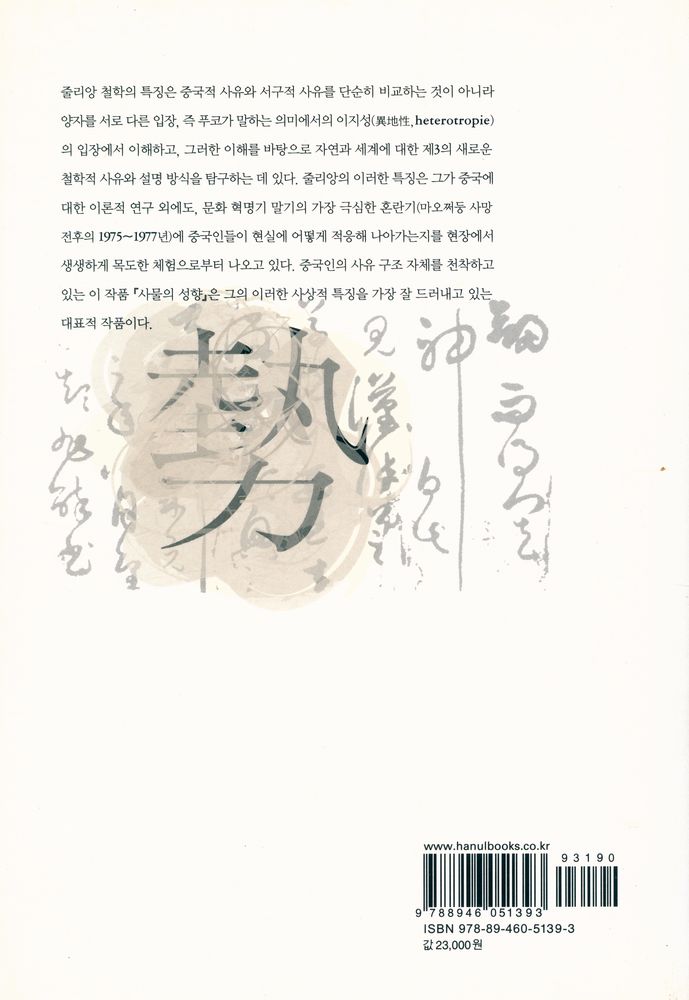 줄리앙 철학의 특징은 중국적 사유와 서구적 사유를 단순히 비교하는 것이 아니라
양자를 서로 다른 입장, 즉 푸코가 말하는 의미에서의 이지성(異地性, heterotropie)
의 입장에서 이해하고, 그러한 이해를 바탕으로 자연과 세계에 대한 제3의 새로운
철학적 사유와 설명 방식을 탐구하는 데 있다. 줄리앙의 이러한 특징은 그가 중국에
대한 이론적 연구 외에도, 문화 혁명기 말기의 가장 극심한 혼란기(마오쩌둥 사망
전후의 1975～1977년)에 중국인들이 현실에 어떻게 적응해 나아가는지를 현장에서
생생하게 목도한 체험으로부터 나오고 있다. 중국인의 사유 구조 자체를 천착하고
있는 이 작품 『사물의 성향』은 그의 이러한 사상적 특징을 가장 잘 드러내고 있는
대표적 작품이다.
勢
見
神
漢
www.hanulbooks.co.kr
93190
9 788946 051393
ISBN 978-89-460-5139-3
값 23,000원